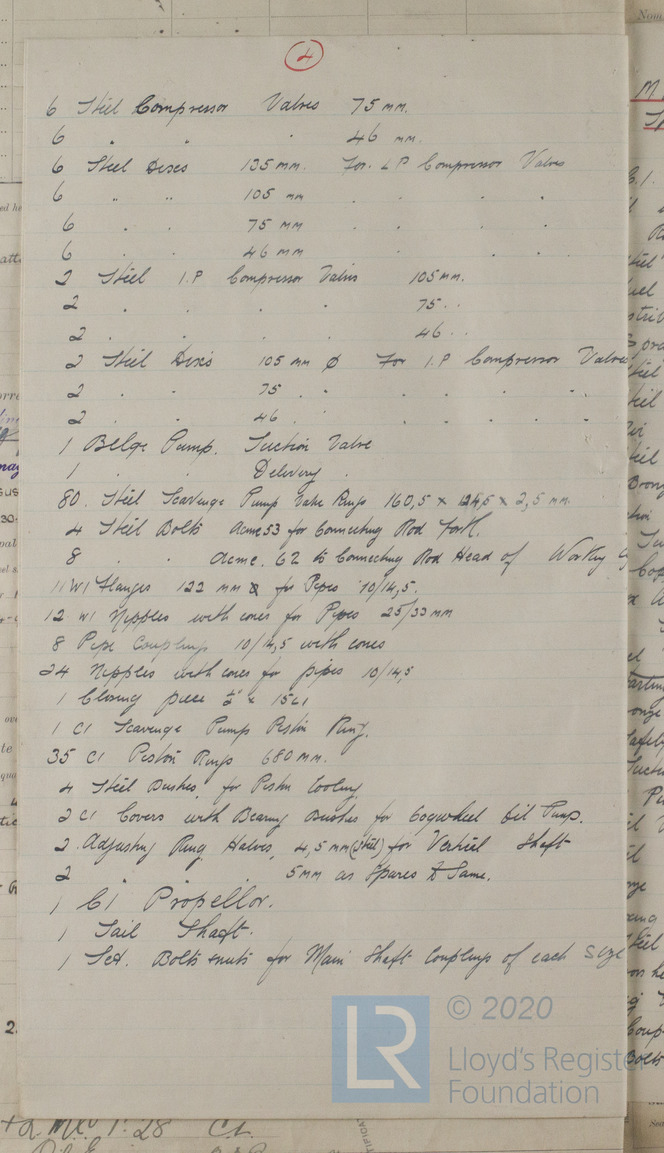 4
6 Steel Compressor Valves 75 mm.
6 " " " 46 mm.
6 Steel Discs 135 mm. For. LP Compressor Valves
6 " " 105 mm " " " "
6 . . 75 mm . . . .
6 . . 46 mm . . . .
2 Steel I.P Compressor Valves 105 mm.
2 . . . . 75 . .
2 . . . . 46 . .
2 Steel Discs 105 mm Ø For I.P Compressor Valves
2 . . 75 . . . . . .
2 . . 46 . . . . . .
1 Belge Pump. Suction Valve
1 . . Delivery .
80. Steel Scavenge Pump Valve Rings 160,5 x 124,5 x 2,5 mm.
4 Steel Bolts Acme 53 for Connecting Rod Fork.
8 . . Acme. 62 to Connecting Rod Head of Working
11 WI Flanges 122 mm Ø for Pipes 10/14,5.
12 WI Nipples with cones for Pipes 25/33 mm
8 Pipe Couplings 10/14,5 with cones
24 Nipples with cones for pipes 10/14,5
1 Closing piece ½" x
1 CI Scavenge Pumps Piston Ring.
35 CI Piston Rings 680 mm.
4 Steel Bushes, for Piston Cooling
2 CI Covers with Bearing Bushes for Cogwheel Oil Pump.
2. Adjusting Ring Halves, 4,5 mm (steel) for Vertical Shaft
2 " 5 mm as Spares to Same.
1 CI Propellor.
1 Tail Shaft.
1 Set. Bolts & nuts for Main Shaft Couplings of each size
LR © 2020
Lloyd's Register
Foundation